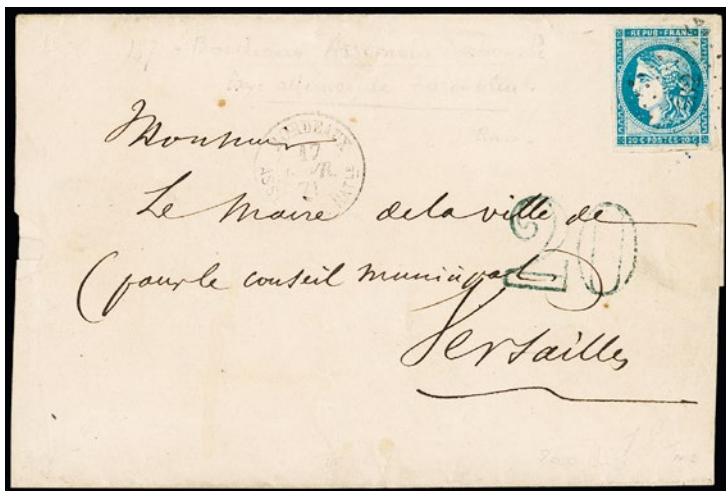 REPUB. FRANC.
20 C POSTES 20 C
Bordeaux Assemblée
BORDEAUX
17
71
ASS NATLE
Monsieur
Le Maire de la ville de
(pour le conseil municipal)
Versailles
20